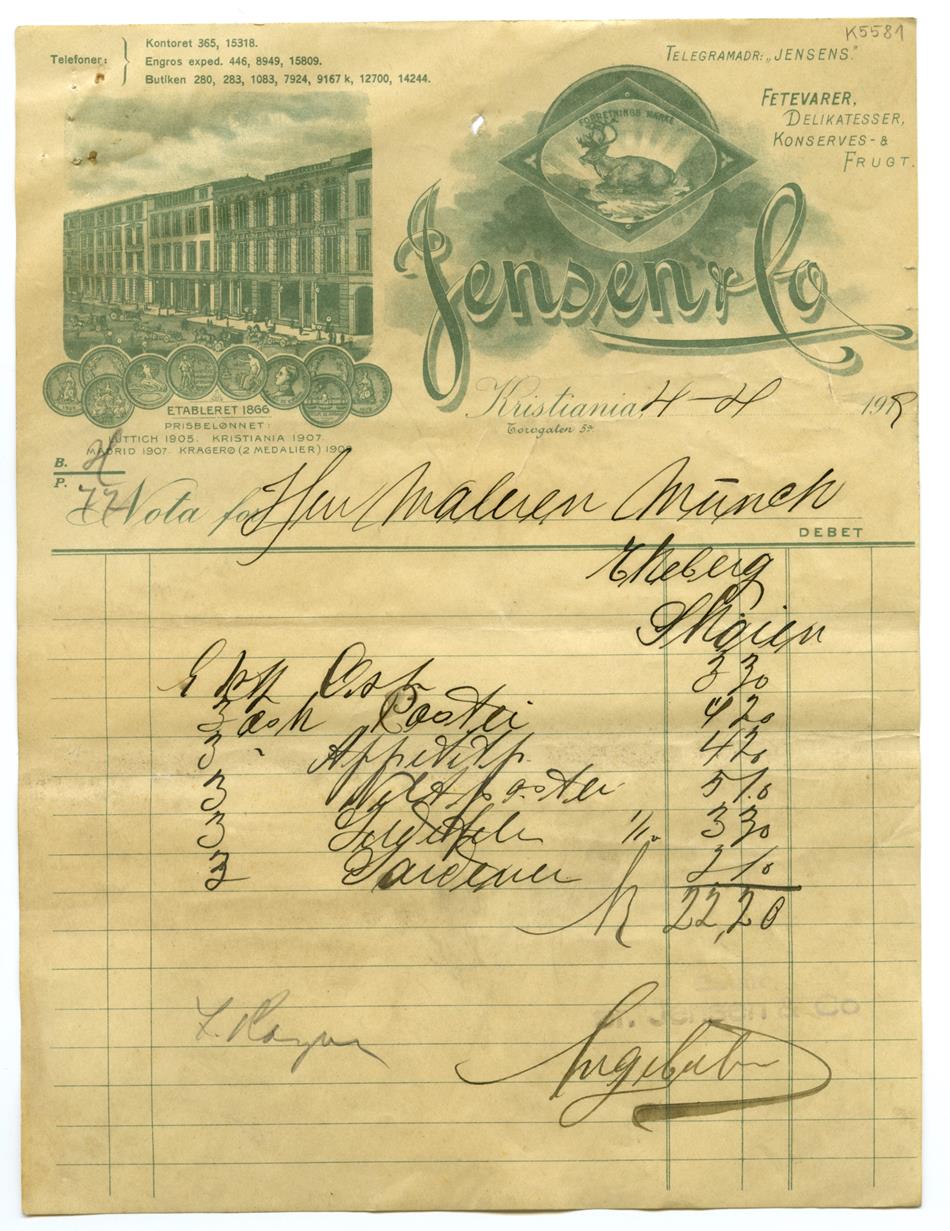 K5581
Telefoner:
Kontoret 365, 15318.
Engros exped. 446, 8949, 15809.
Butiken 280, 283, 1083, 7924, 9167 k, 12700, 14244.
TELEGRAMADR: „JENSENS”.
FETEVARER,
DELIKATESSER,
KONSERVES- &
FRUGT.
FORRETNINGS MÆRKE
Jensen & Co
ETABLERET 1866
PRISBELØNNET:
LÜTTICH 1905. KRISTIANIA 1907.
MADRID 1907. KRAGERØ (2 MEDALIER) 190
Kristiania, 4-4 191
Torvgaten 5
B.
P.
Nota for Herr Maleren Münch
DEBET
Ekeberg
Skøien
Ost 3 30
3 æsk Postei 4 20
3 " Appetitsp. 4 20
3 Vildtpostei 5 10
3 1/10 3 30
3 Sardener 2 10
Kr 22,20
Jensen & Co